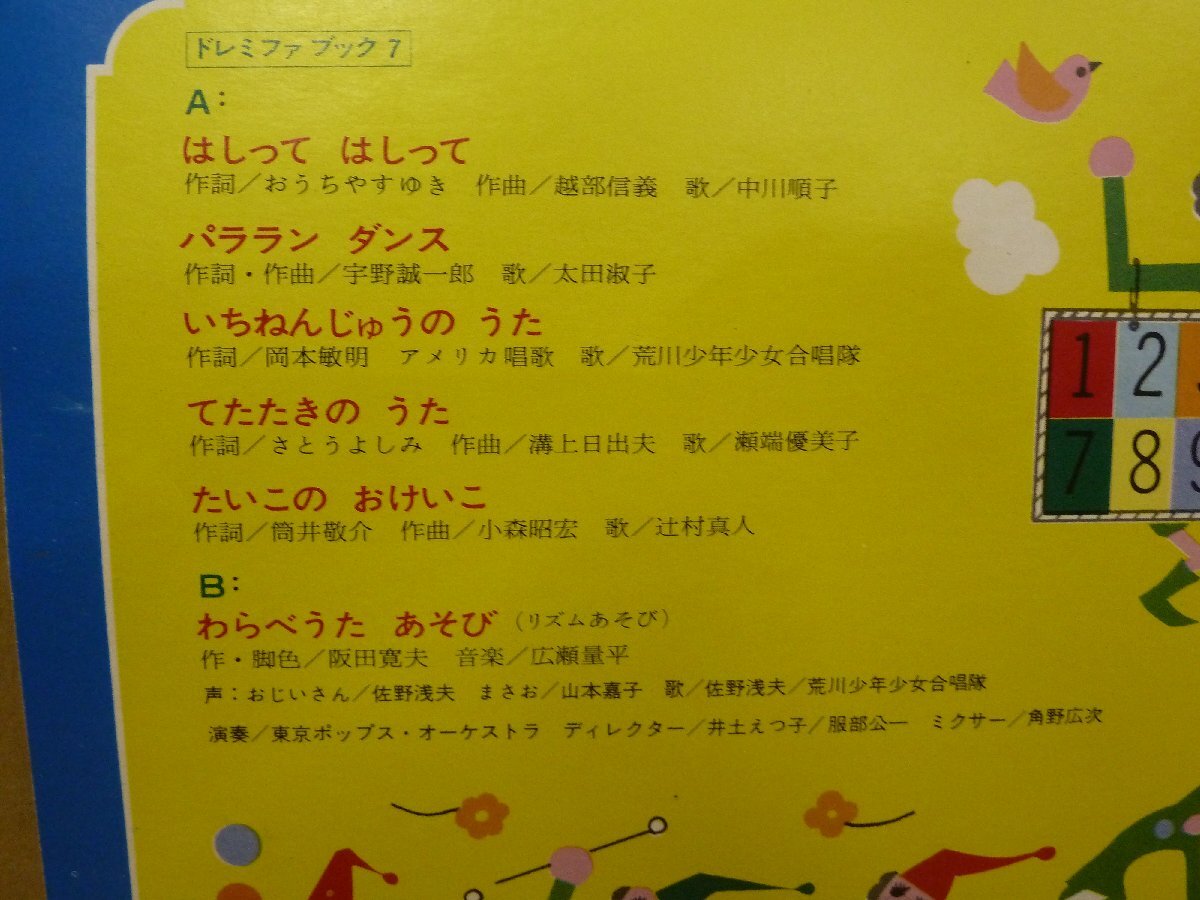 ドレミファ ブック 7
A:
はしって はしって
作詞/おうちやすゆき 作曲/越部信義 歌/中川順子
パララン ダンス
作詞・作曲/宇野誠一郎 歌/太田淑子
いちねんじゅうの うた
作詞/岡本敏明 アメリカ唱歌 歌/荒川少年少女合唱隊
てたたきの うた
作詞/さとうよしみ 作曲/溝上日出夫 歌/瀬端優美子
たいこの おけいこ
作詞/筒井敬介 作曲/小森昭宏 歌/辻村真人
B:
わらべうた あそび (リズムあそび)
作・脚色/阪田寛夫 音楽/広瀬量平
声:おじいさん/佐野浅夫 まさお/山本嘉子 歌/佐野浅夫/荒川少年少女合唱隊
演奏/東京ポップス・オーケストラ ディレクター/井土えつ子/服部公一 ミクサー/角野広次
1 2
7 8 9